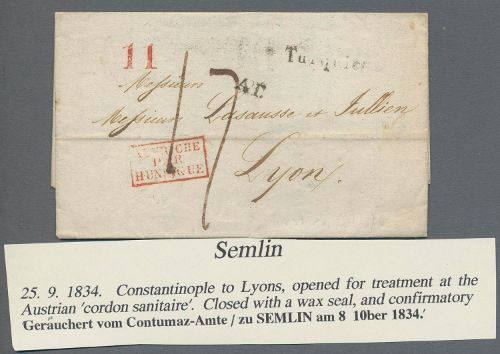 11
Turquie
Messieurs
A.T.
Messieurs Dasausse et Jullien
17
AUTRICHE
PAR
HUNINGUE
Lyon.
Semlin
25. 9. 1834. Constantinople to Lyons, opened for treatment at the
Austrian 'cordon sanitaire'. Closed with a wax seal, and confirmatory
Geräuchert vom Contumaz-Amte / zu SEMLIN am 8 10ber 1834.'